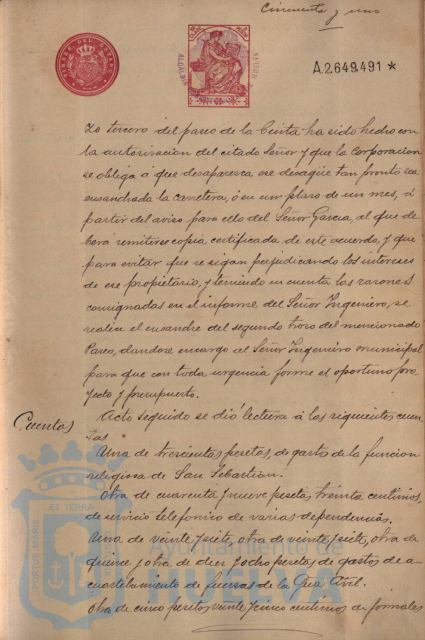 Cincuenta y uno
TIMBRE DEL ESTADO
A.2.649.491 *
zo tercero del paseo de la Cinta ha sido hecho con
la autorizacion del citado Señor y que la Corporacion
se obliga á que desaparezca ese desagüe tan pronto sea
ensanchada la carretera, ó en un plazo de un mes, á
partir del aviso para ello del Señor Garcia, al que de
berá remitirse copia certificada de este acuerdo, y que
para evitar que se sigan perjudicando los intereses
de ese propietario, y teniendo en cuenta las razones
consignadas en el informe del Señor Ingeniero, se
realice el ensanche del segundo trozo del mencionado
Paseo, dandose encargo al Señor Ingeniero municipal
para que con toda urgencia forme el oportuno pro
yecto y presupuesto.
Cuentas
Acto seguido se dió lectura á las siguientes cuen
tas
Una de trescientas pesetas, de gastos de la funcion
religiosa de San Sebastian.
Otra de cuarenta y nueve pesetas treinta centimos,
de servicio telefonico de varias dependencias.
Una de veinte y siete, otra de veinte y siete, otra de
quince y otra de diez y ocho pesetas de gastos de a
cuartelamiento de fuerzas de la Gua Civil.
Otra de cinco pesetas veinte y cinco centimos de jornales
PORTUS MARIS
ET TERRÆ
Ayuntamiento de
HUELVA